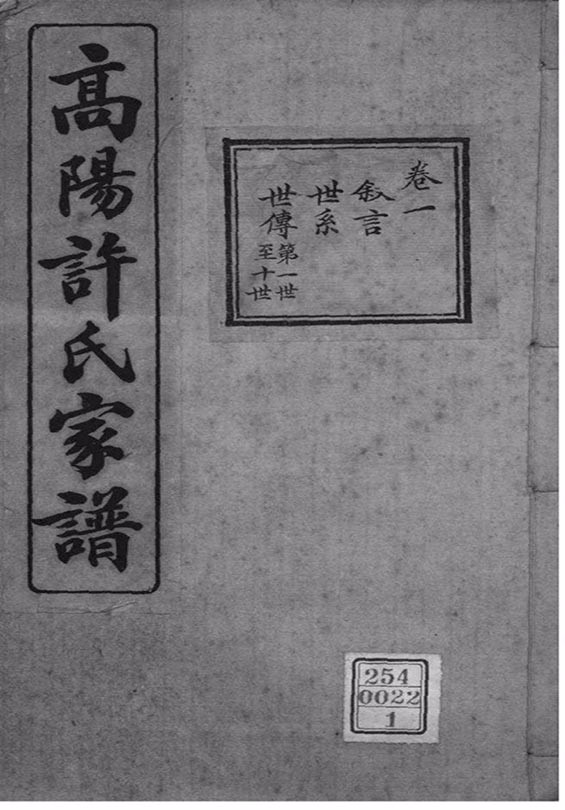 高陽許氏家譜
卷一
敘言
世系
世傳第一世至十世
254
0022
1